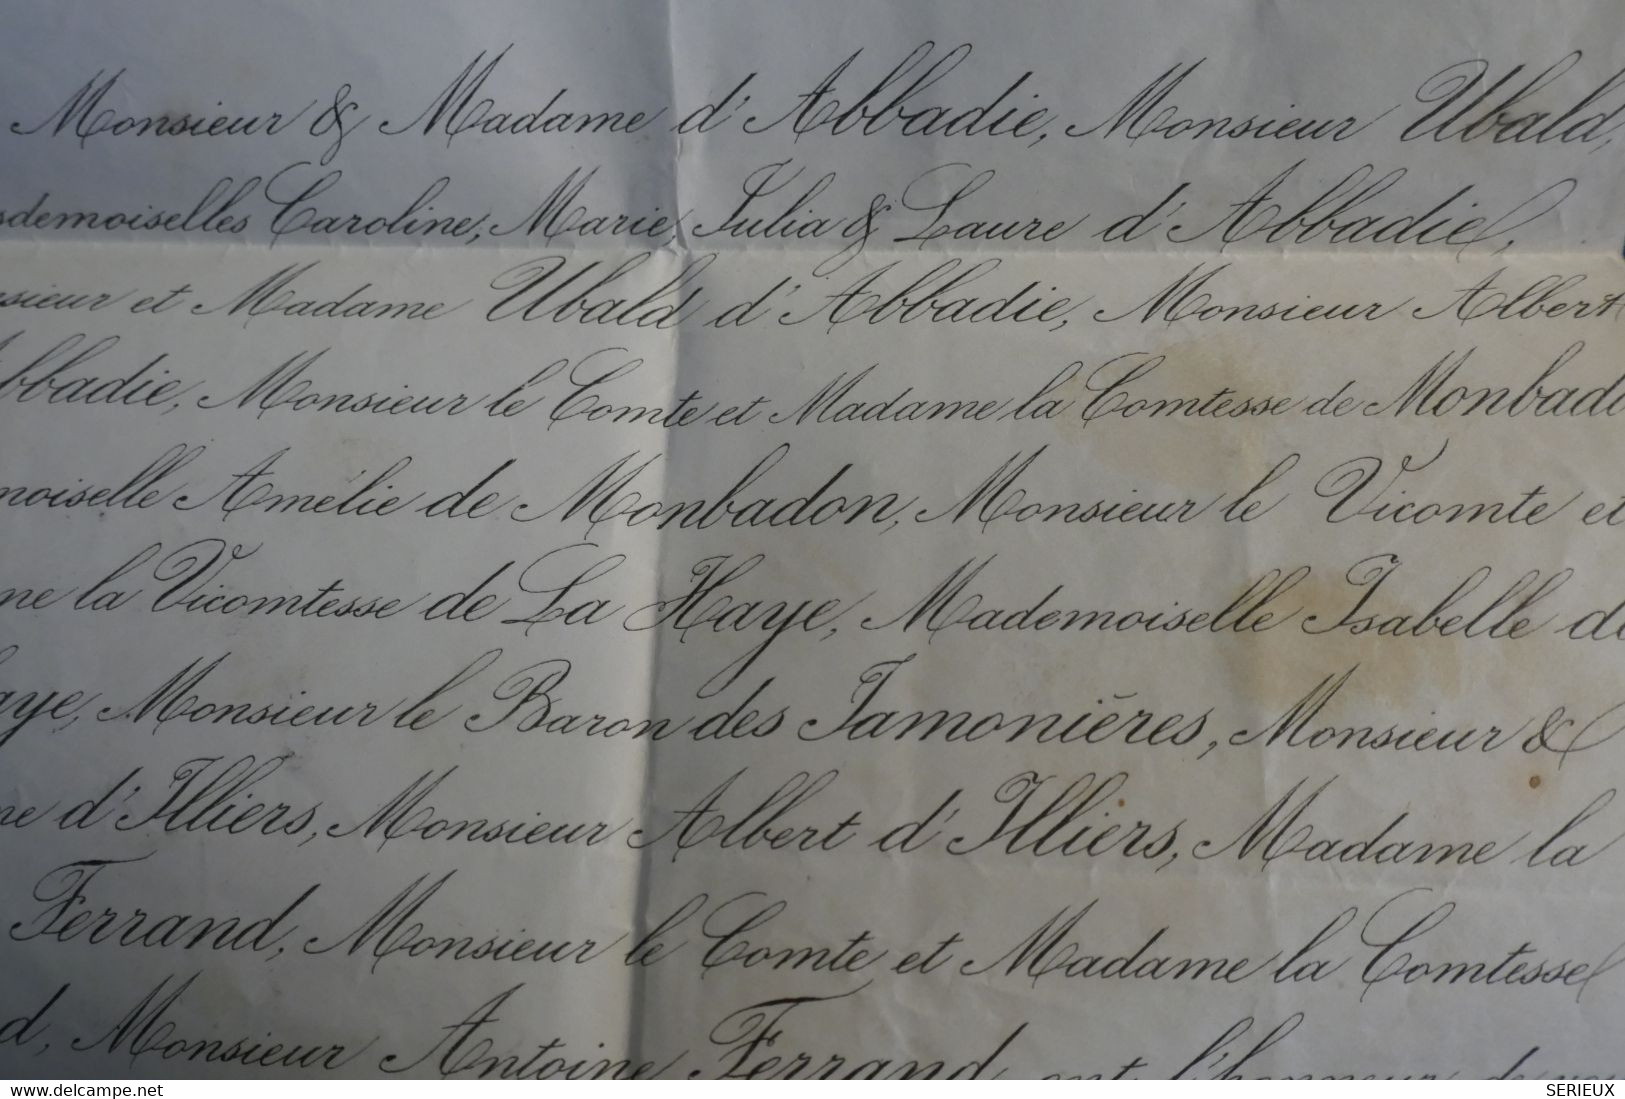 Monsieur & Madame d'Abbadie, Monsieur Ubald,
sdemoiselles Caroline, Marie, Julia & Laure d'Abbadie,
sieur et Madame Ubald d'Abbadie, Monsieur Albert
bbadie, Monsieur le Comte et Madame la Comtesse de Monbad
moiselle Amélie de Monbadon, Monsieur le Vicomte et
me la Vicomtesse de La Haye, Mademoiselle Isabelle de
aye, Monsieur le Baron des Jamonières, Monsieur &
me d'Illiers, Monsieur Albert d'Illiers, Madame la
Ferrand, Monsieur le Comte et Madame la Comtesse
d, Monsieur Antoine Ferrand, ont l'honneur de
delcampe.net
SERIEUX